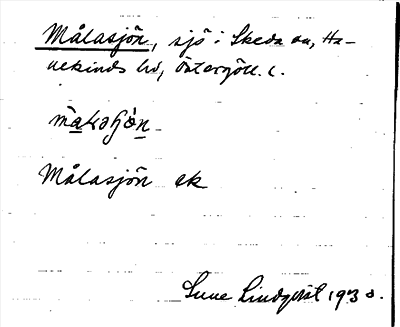 Målasjön, sjö i Skeda sn, Ha-
nekinds hd, Östergötl. l.
Målasjön ek
Sune Lindqvist 1930.